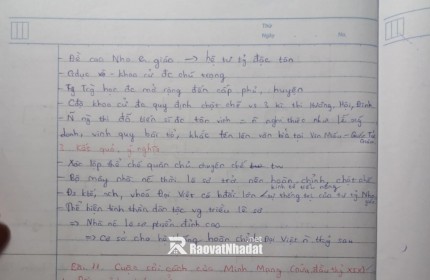 Thứ
Ngày
No.
- Đề cao Nho giáo → hệ tư tg độc tôn
- Gdục và khoa cử đc chú trọng
- Trg học đc mở rộng đến cấp phủ, huyện
- Chế khoa cử đc quy định chặt chẽ vs 3 kì thi Hương, Hội, Đình
- N ng thi đỗ tiến sĩ đc tôn vinh = n nghi thức như lễ xướng
danh, vinh quy bái tổ, khắc tên lên văn bia tại Văn Miếu - Quốc Tử
Giám
2. Kết quả, ý nghĩa
- Xác lập thể chế quân chủ chuyên chế
- Bộ máy nhà nc thời Lê sơ trở nên hoàn chỉnh, chặt chẽ
- Đc khti, vh, Đại Việt có bc thống trị của tư tg Nho
giáo
- Thể hiện tinh thần dân tộc vg triều Lê sơ
⇒ Nhà nc Lê sơ pt đỉnh cao
⇒ Cơ sở cho hệ thống hoàn chỉnh Đại Việt n thế kỷ sau
RaovatNhadat
Bài 11. Cuộc cải cách của Minh Mạng (nửa đầu thế kỉ XIX)